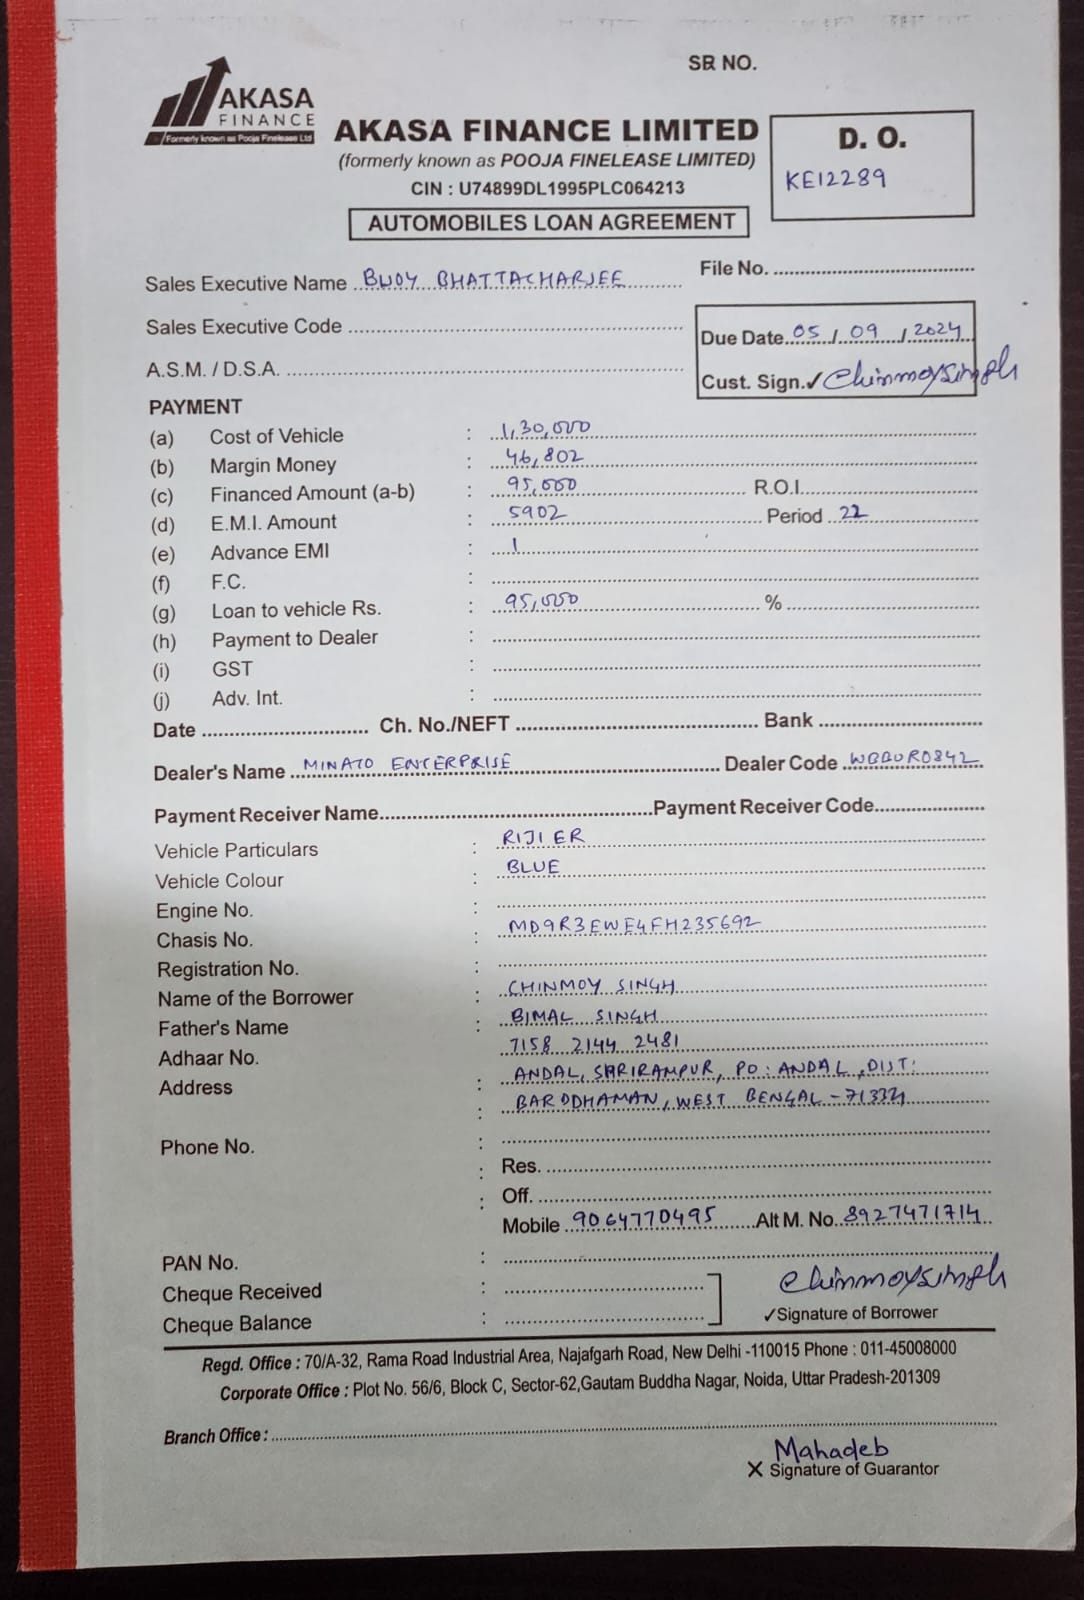 SR NO.
AKASA
FINANCE
Formerly known as Pooja Finelease Ltd
AKASA FINANCE LIMITED
(formerly known as POOJA FINELEASE LIMITED)
CIN : U74899DL1995PLC064213
AUTOMOBILES LOAN AGREEMENT
D. O.
KE12289
Sales Executive Name BIJOY BHATTACHARJEE
File No.
Sales Executive Code
Due Date 05/09/2024
A.S.M. / D.S.A.
Cust. Sign.✓ Chinmoy Singh
PAYMENT
(a) Cost of Vehicle : 1,30,000
(b) Margin Money : 46,802
(c) Financed Amount (a-b) : 95,000 R.O.I.
(d) E.M.I. Amount : 5902 Period 22
(e) Advance EMI : 1
(f) F.C. :
(g) Loan to vehicle Rs. : 95,000 %
(h) Payment to Dealer :
(i) GST :
(j) Adv. Int. :
Date Ch. No./NEFT Bank
Dealer's Name MINATO ENTERPRISE Dealer Code
Payment Receiver Name Payment Receiver Code
Vehicle Particulars : RIJIER
Vehicle Colour : BLUE
Engine No. :
Chasis No. : MD9R3EWE4FH235692
Registration No. :
Name of the Borrower : CHINMOY SINGH
Father's Name : BIMAL SINGH
Adhaar No. 7158 2144 2481
Address : ANDAL, SHRIRAMPUR, PO: ANDAL, DIST:
: BARDDHAMAN, WEST BENGAL -
Phone No. :
: Res.
: Off.
Mobile 9064770495 Alt M. No. 8927471714
PAN No. :
Cheque Received :
Chinmoy Singh
Cheque Balance :
✓Signature of Borrower
Regd. Office : 70/A-32, Rama Road Industrial Area, Najafgarh Road, New Delhi -110015 Phone : 011-45008000
Corporate Office : Plot No. 56/6, Block C, Sector-62,Gautam Buddha Nagar, Noida, Uttar Pradesh-201309
Branch Office :
Mahadeb
X Signature of Guarantor